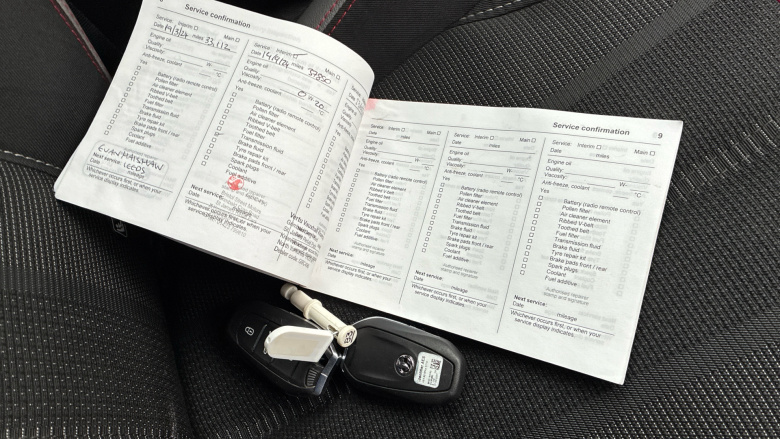 Service confirmation
Service: Interim Main
Date 19/3/24 miles 33,112
Engine oil
Quality:
Viscosity:
Anti-freeze, coolant
Yes
Battery (radio remote control)
Pollen filter
Air cleaner element
Ribbed V-belt
Toothed belt
Fuel filter
Transmission fluid
Brake fluid
Tyre repair kit
Brake pads front / rear
Spark plugs
Coolant
Fuel additive
EVANS HALSHAW
LEEDS
Next service:
Date mileage
Whichever occurs first, or when your
service display indicates.
Service: Interim Main
miles
Engine oil
Quality:
Viscosity:
Anti-freeze, coolant
Yes
Battery (radio remote control)
Pollen filter
Air cleaner element
Ribbed V-belt
Toothed belt
Fuel filter
Transmission fluid
Brake fluid
Tyre repair kit
Brake pads front / rear
Spark plugs
Coolant
Fuel additive
Next service:
Whichever occurs first, or when your
service display indicates.
Service: Interim Main
Date miles
Engine oil
Quality:
Viscosity:
Anti-freeze, coolant
Yes
Battery (radio remote control)
Pollen filter
Air cleaner element
Ribbed V-belt
Toothed belt
Fuel filter
Transmission fluid
Brake fluid
Tyre repair kit
Brake pads front / rear
Spark plugs
Coolant
Fuel additive
Next service:
Date mileage
Whichever occurs first, or when your
service display indicates.
Service: Interim Main
Date miles
Engine oil
Quality:
Viscosity: W-
Anti-freeze, coolant °C
Yes
Battery (radio remote control)
Pollen filter
Air cleaner element
Ribbed V-belt
Toothed belt
Fuel filter
Transmission fluid
Brake fluid
Tyre repair kit
Brake pads front / rear
Spark plugs
Coolant
Fuel additive
Authorised repairer
stamp and signature
Next service:
Date mileage
Whichever occurs first, or when your
service display indicates.
Service confirmation 9
Service: Interim Main
Date miles
Engine oil
Quality:
Viscosity: W-
Anti-freeze, coolant °C
Yes
Battery (radio remote control)
Pollen filter
Air cleaner element
Ribbed V-belt
Toothed belt
Fuel filter
Transmission fluid
Brake fluid
Tyre repair kit
Brake pads front / rear
Spark plugs
Coolant
Fuel additive
Authorised repairer
stamp and signature
Next service:
Date mileage
Whichever occurs first, or when your
service display indicates.